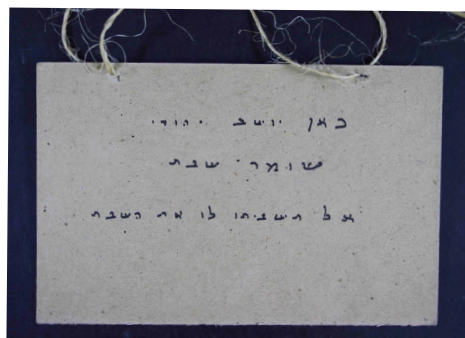 כאן יושב יהודי
שומר שבת
אל תשביתו לו את השבת